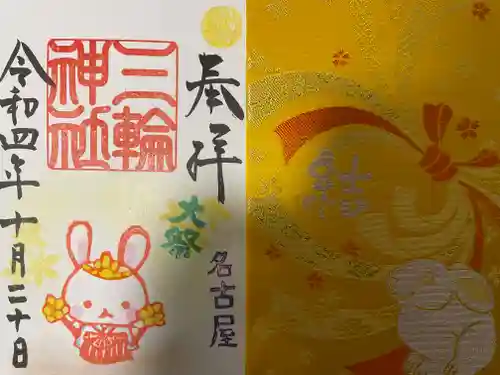 奉拝
名古屋
大祭
三輪
神社
令和四年十月二十日